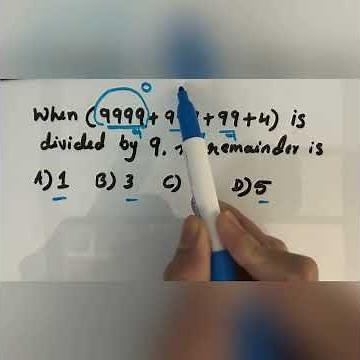 When (9999 + 9 + 99 + 4) is
divided by 9, remainder is
A) 1 B) 3 C) D) 5
0